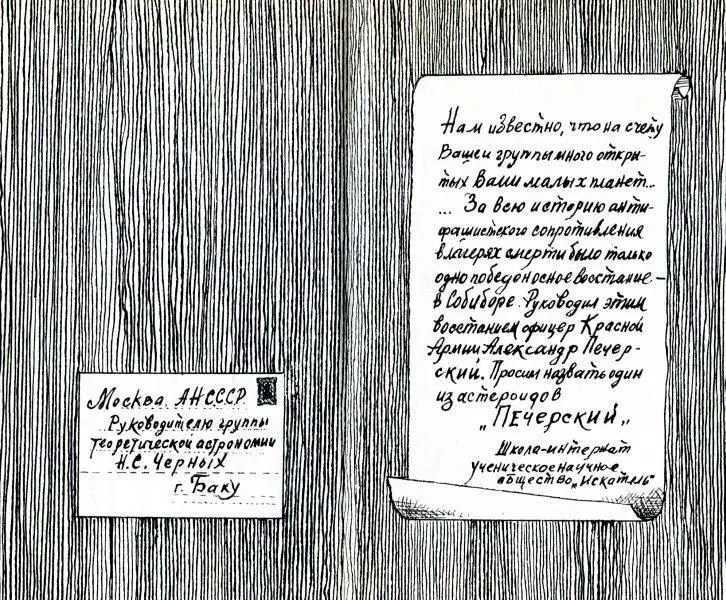 Москва. АНСССР
Руководителю группы
теоретической астрономии
Н.С. Черных
г. Баку
Нам известно, что на счету
Вашей группы много откры-
тых Вами малых планет...
... За всю историю анти-
фашистского сопротивления
в лагерях смерти было только
одно победоносное восстание –
в Собиборе. Руководил этим
восстанием офицер Красной
Армии Александр Печер-
ский. Просим назвать один
из астероидов
„ПЕЧЕРСКИЙ„
Школа-интернат
ученическое научное
общество „Искатель"